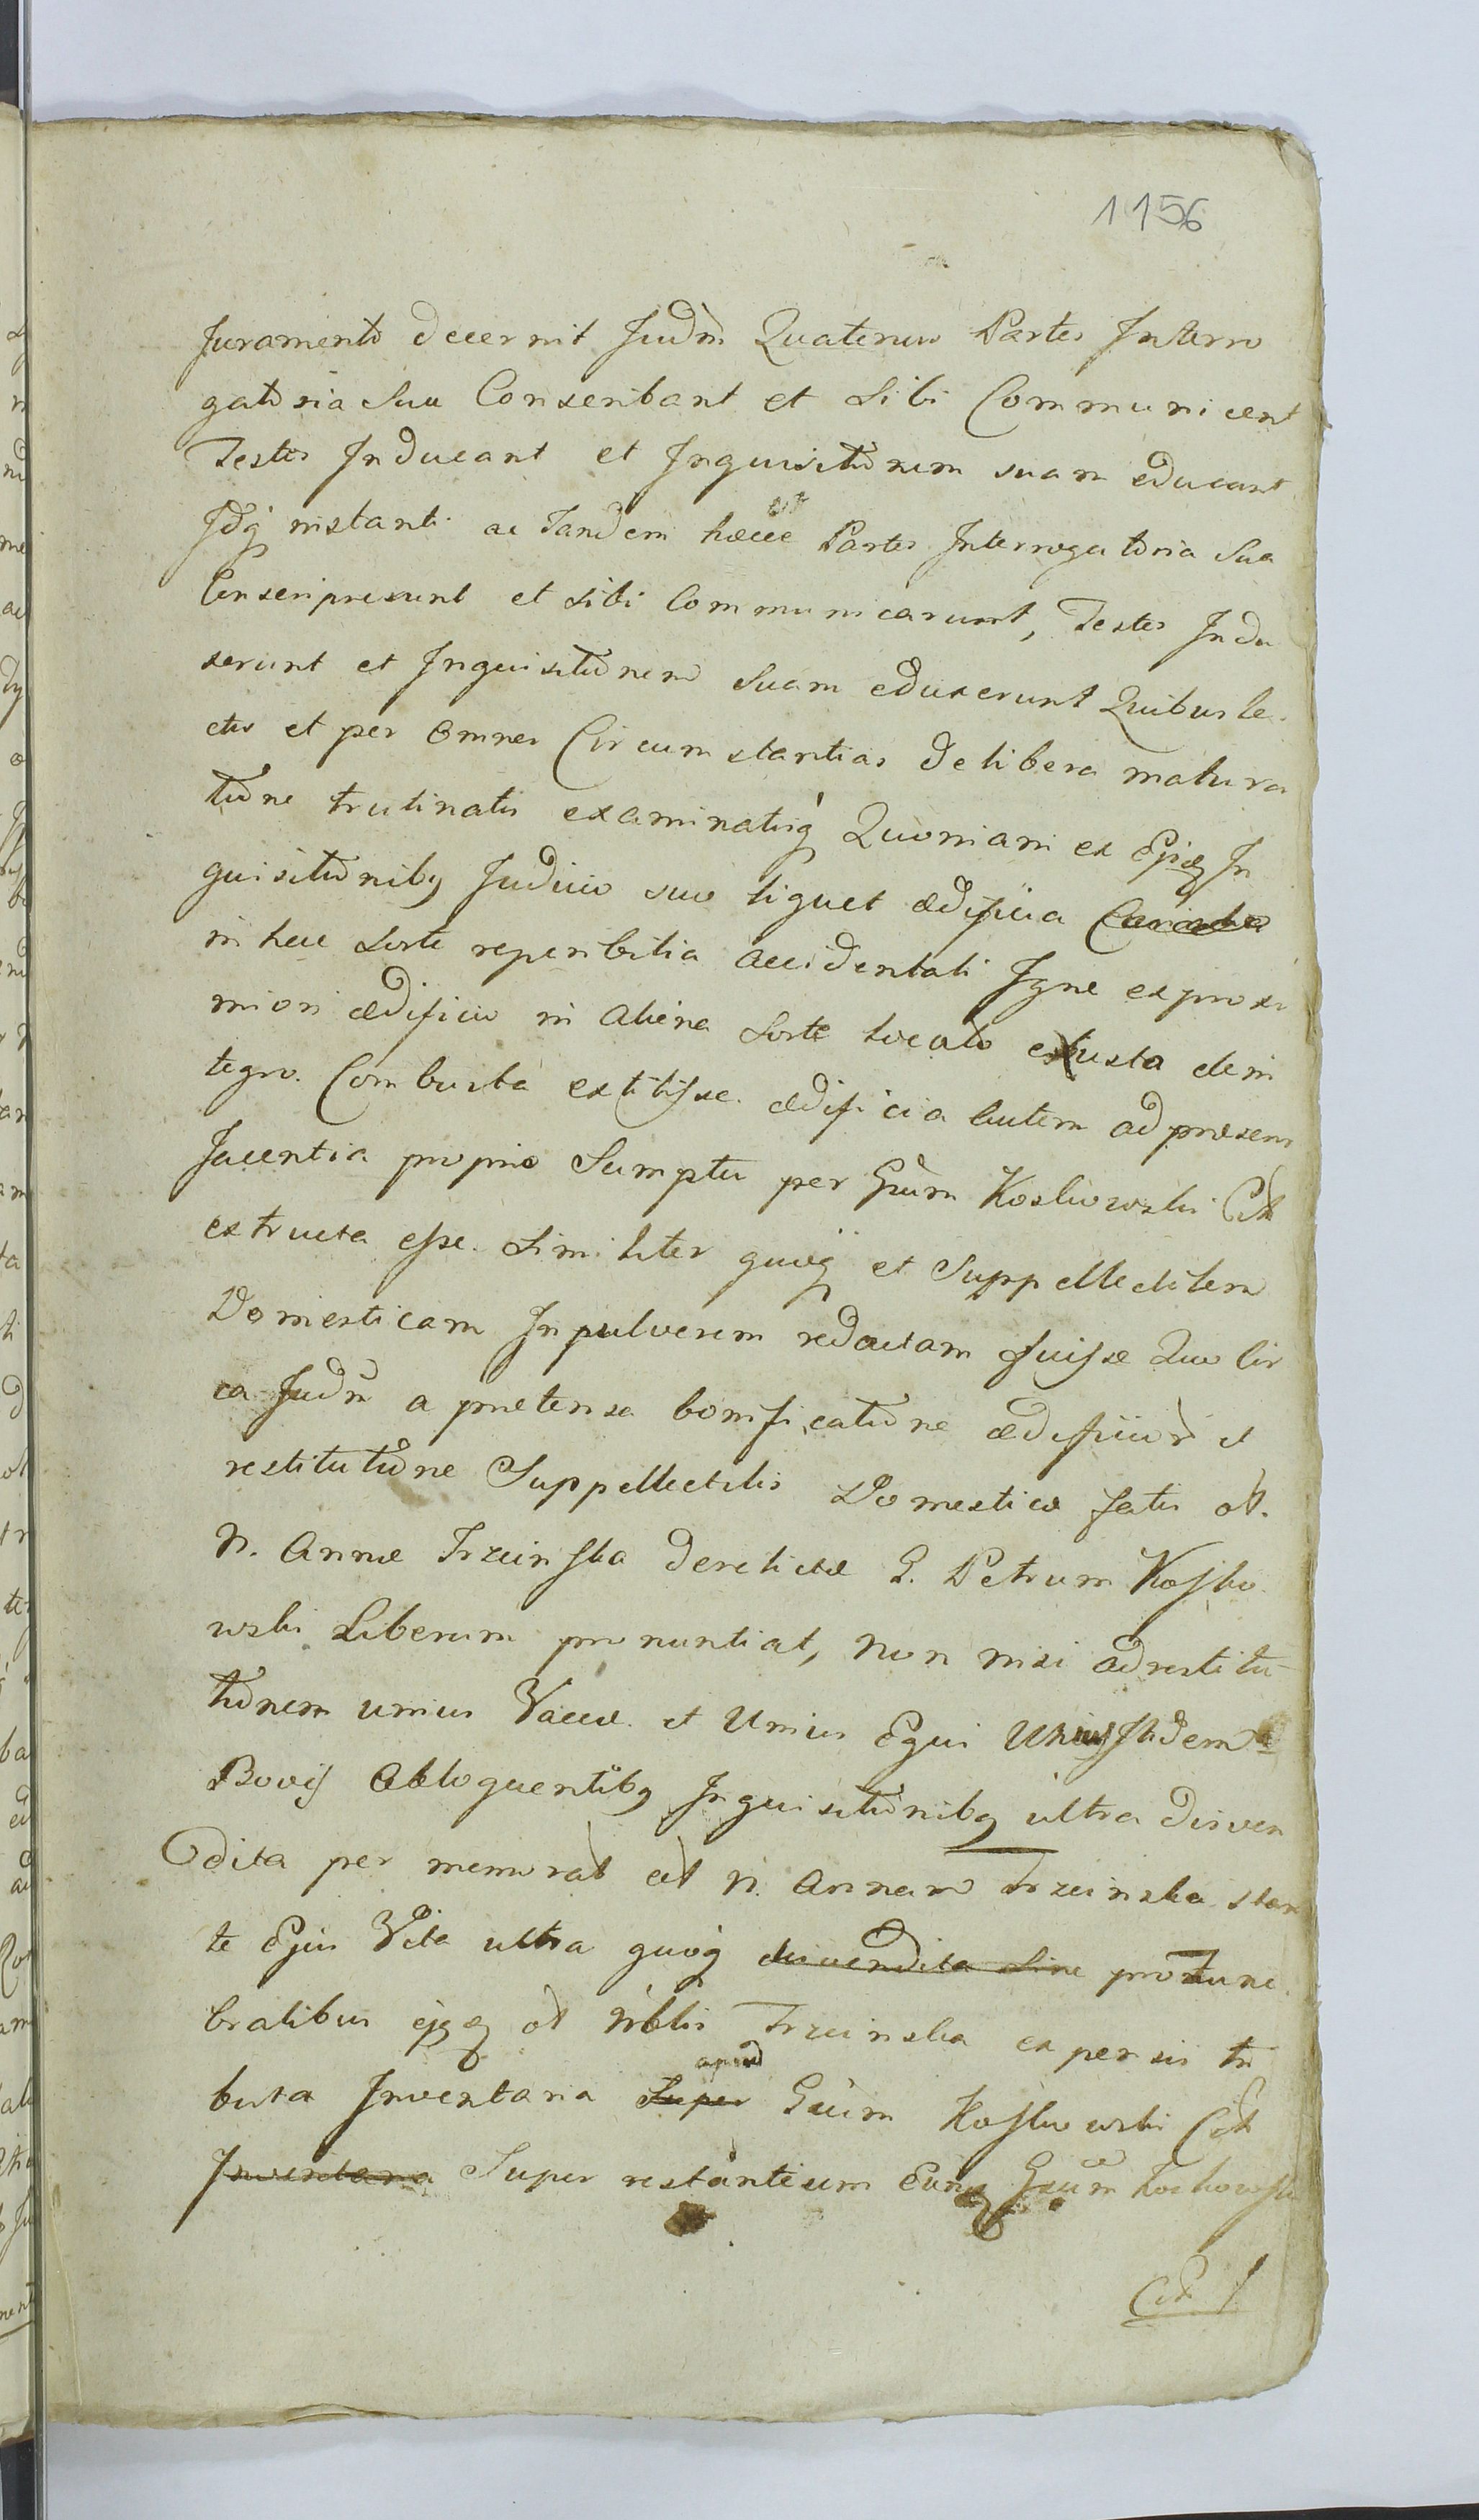 1156
Juramento decernit Judm Quatenus Partes Interro
gatoria Sua Conscribant et Sibi Communicent
Testes Inducant et Inquisitionem suam educant
Idq instanti ac Tandem haece Partes Interrogatoria Sua
Conscripserunt et sibi Communicarunt, Testes Indu
xerunt et Inquisitionem Suam eduxerunt Quibus le
ctis et per omnes Circumstantias delibera matura
tione trutinatis examinatisq Quoniam ex In
quisitionibq Judicio suo liquet ædificia
in hac Sorte reperibilia accidentali Igne ex proxi
miori ædificio in aliena Sorte locato exusta de in
tegro Combusta extitisse ædificia autem ad præsens
Jacentia proprio Sumptu per Gsum Koskowski Citt
extructa esse similiter quoq et Suppellectilem
Domesticam In pulverem redactam fuisse Quo Cir
ca Judm a prætensa bonificatione ædificior et
restitutione Suppellectilis Domesticæ fatis ol.
N. Annæ Trzcinska derelictæ G. Petrum Kosko
wski Liberum pronuntiat, non nisi ad restitu
tionem unius Vaccæ et Unius Equi Unius itidem
Bovis Abloquentibq Inquisitionibq ultra disven
dita per memorat ol N. Annam Trzcinska stan
te Ejus Vita ultra quoq disvendita sine pro fune
bralibus ejsq ol Nblis Trzcinska expensis tri
buta Inventaria Super apud Gsum Koskowski Citt
Inventaria Super restantium Gsum Koskowski
Citt